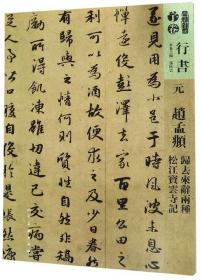 行書
元
趙孟頫
歸去來辭兩種
松江寶雲寺記
遂見用為小邑于時風波未息心
憚遠役彭澤去家百里公田之
利可以為酒故便求之少日眷然
有歸與之情何則質性自然
飢凍雖切違己交病
人事皆口腹自役於是悵然